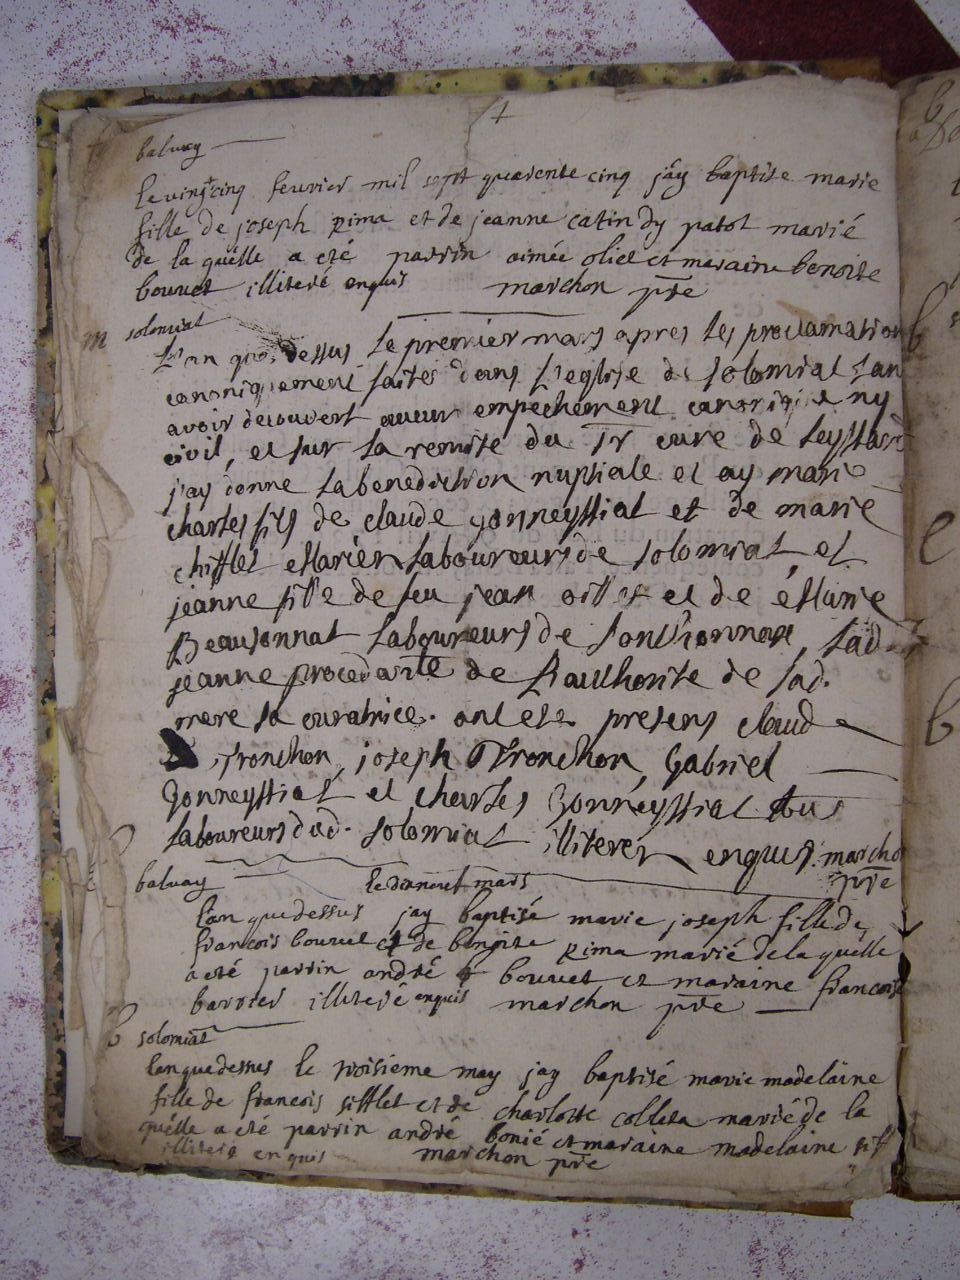 4
balvay
le vingt cinq fevrier mil sept quarente cinq jáy baptise marie
fille de joseph rima et de jeanne catin dy patot marié
de la quélle a eté parrin aimée oliet et maraine benoite
bouvet illiteré enquis marchon ptre
m solomiat
L'an que dessus le premier mars apres les proclamations
canoniquement faites dans L'eglise de solomiat san
avoir decouvert aucun empechement canonique ny
civil, et sur la remise du Sr curé de Leyssard
j'ay donne la benediction nuptiale et ay marie
charles fils de claude gonneyssiat et de marie
chifflet laboureurs de solomiat, et
jeanne fille de feu jean et de
Beausonnat Laboureurs de Sonthonnax, Lad.
jeanne procedante de L'authorite de sad.
mere sa curatrice. ont ete presens claude
Tronchon, joseph Tronchon, Gabriel
Gonneyssiat et charles Gonneyssiat tous
laboureurs dud. solomiat illiterez enquis. marchon
ptre
balvay le dixneuf mars
l'an que dessus jay baptisé marie joseph fille de
francois bouvet et de benoite rima marié de la quélle
a eté parrin andré bouvet et maraine francoise
barrier illiteré enquis marchon ptre
b solomiat
lan que dessus le troisieme may jay baptisé marie madelaine
fille de francois sifflet et de charlotte colleta marié de la
quélle a eté parrin andré bonié et maraine madelaine siff
illiteré enquis marchon ptre